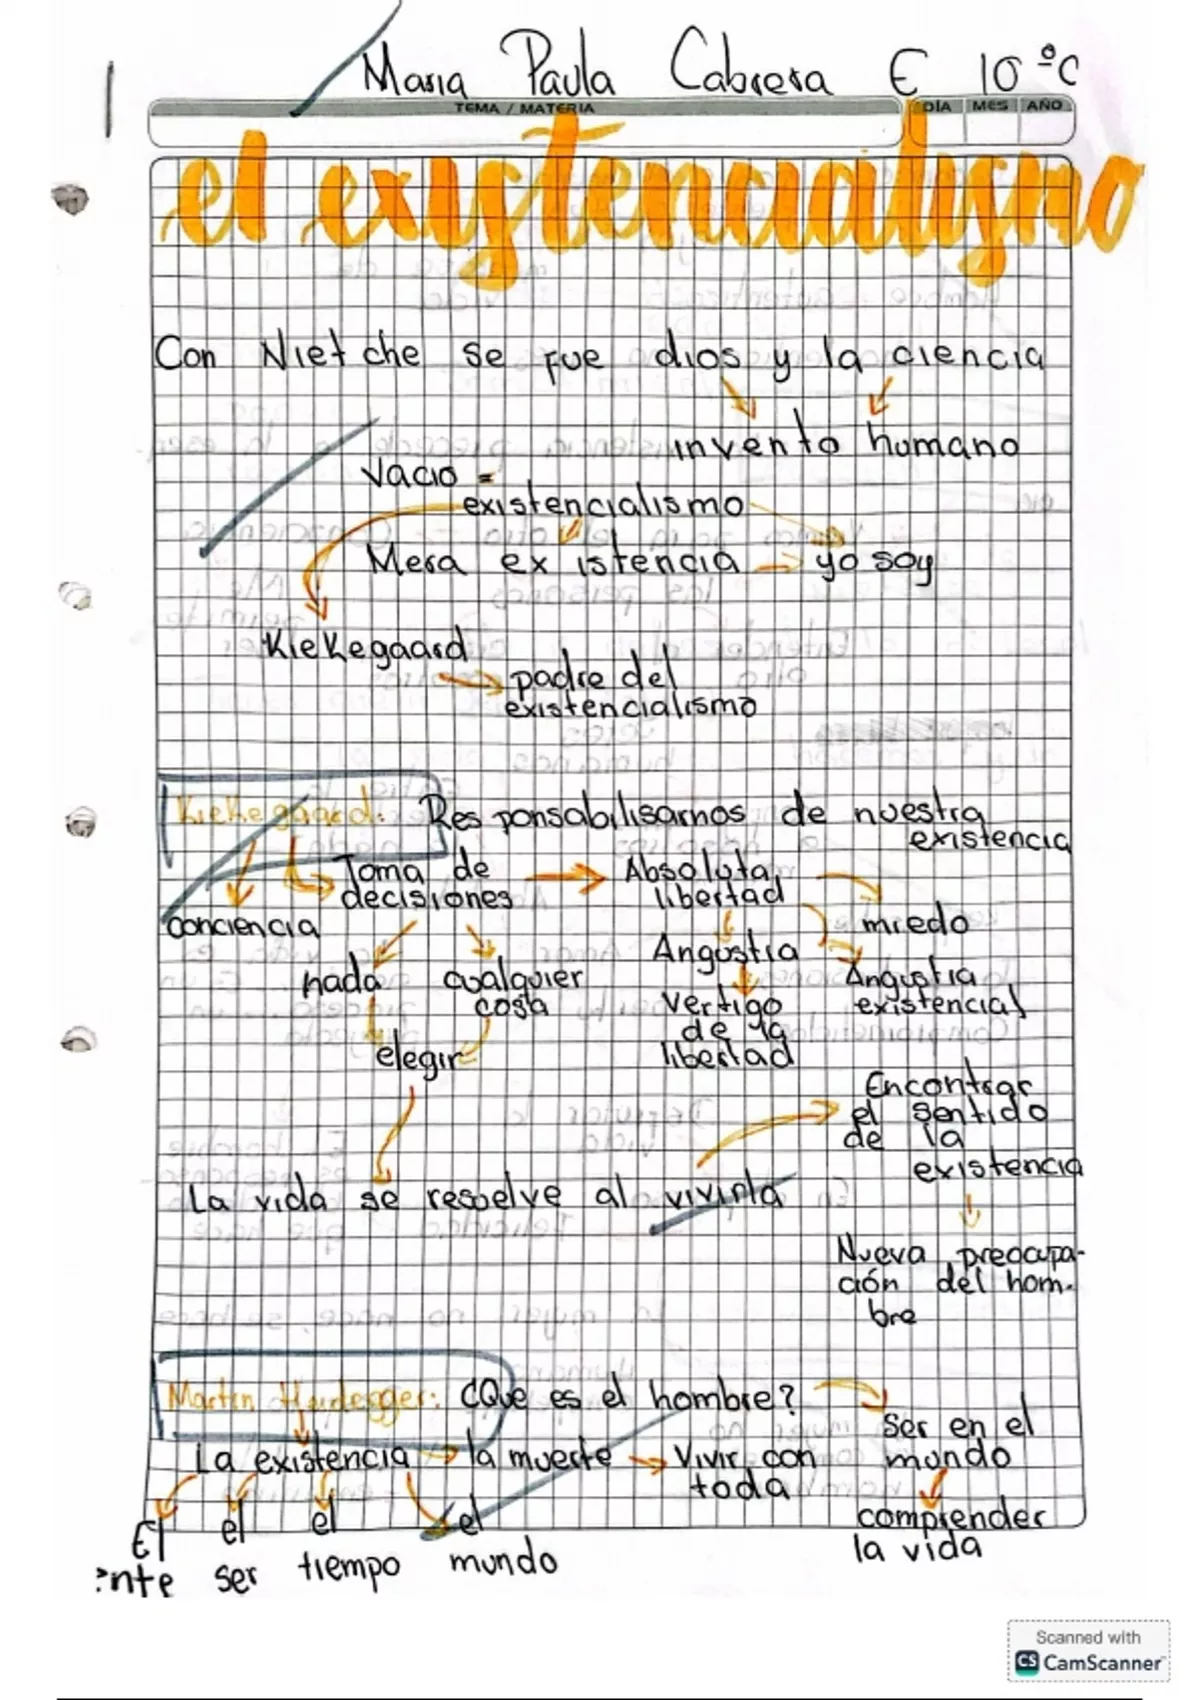 Maria Paula Cabrera E 10°C
TEMA / MATERIA DÍA MES AÑO
el existencialismo
Con Nietche se fue dios y la ciencia
invento humano
Vacio =
existencialismo
Mera existencia yo soy
Kiekegaard
padre del
existencialismo
Kiekegaard: Responsabilisarnos de nuestra
existencia
Toma de
decisiones
Absoluta
libertad
conciencia
miedo
nada
cualquier
costa
Angustia
Angustia
existencial
Vertigo
de la
libertad
elegir
Encontrar
el sentido
de la
existencia
La vida se resuelve al vivirla
Nueva preocupa-
ción del hom-
bre
Martin Heidegger: ¿Que es el hombre?
Ser en el
mundo
La existencia la muerte Vivir con
toda
comprender
la vida
El el el el
ente ser tiempo mundo
Scanned with
CS CamScanner